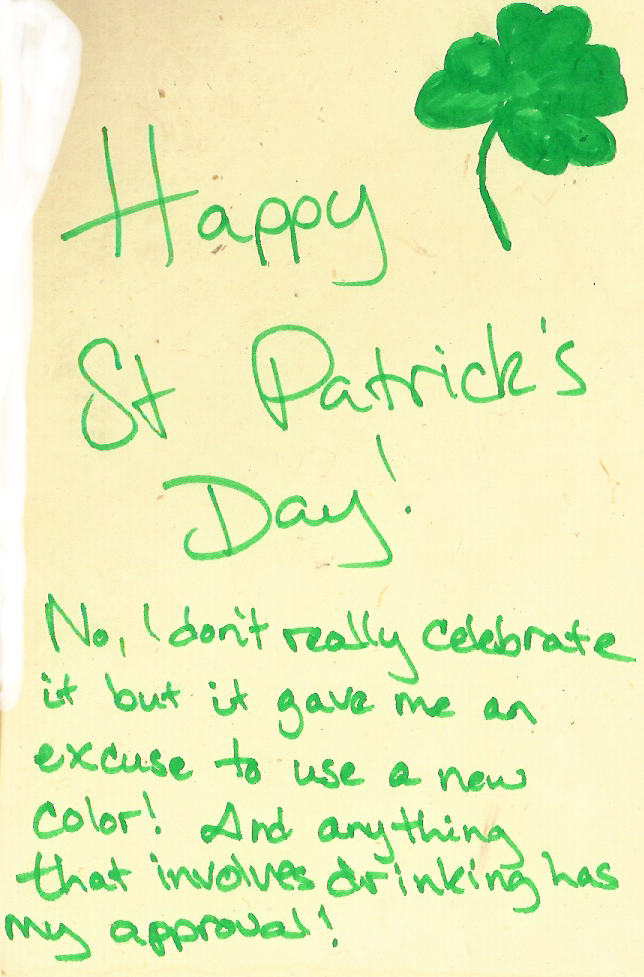 Happy
St Patrick's
Day!
No, I don't really celebrate
it but it gave me an
excuse to use a new
color! And anything
that involves drinking has
my approval!